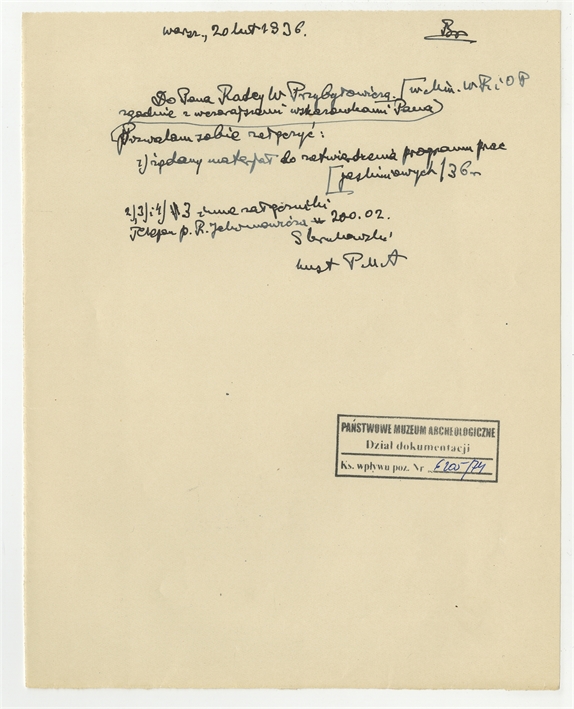 Warsz., 20 lut 1936.
Do Pana Radcy W Przybyłowicza. [w Min. W R i O P
zgodnie z wczorajszemi wskazówkami Pana)
Pozwalam sobie załączyć:
1) żądany materjał do zatwierdzenia programu prac
[jaskiniowych /36 r
2), 3) i 4) 3 inne załączniki
p. R. 200.02.
PMA
PAŃSTWOWE MUZEUM ARCHEOLOGICZNE
Dział dokumentacji
Ks. wpływu poz. Nr 6200/74